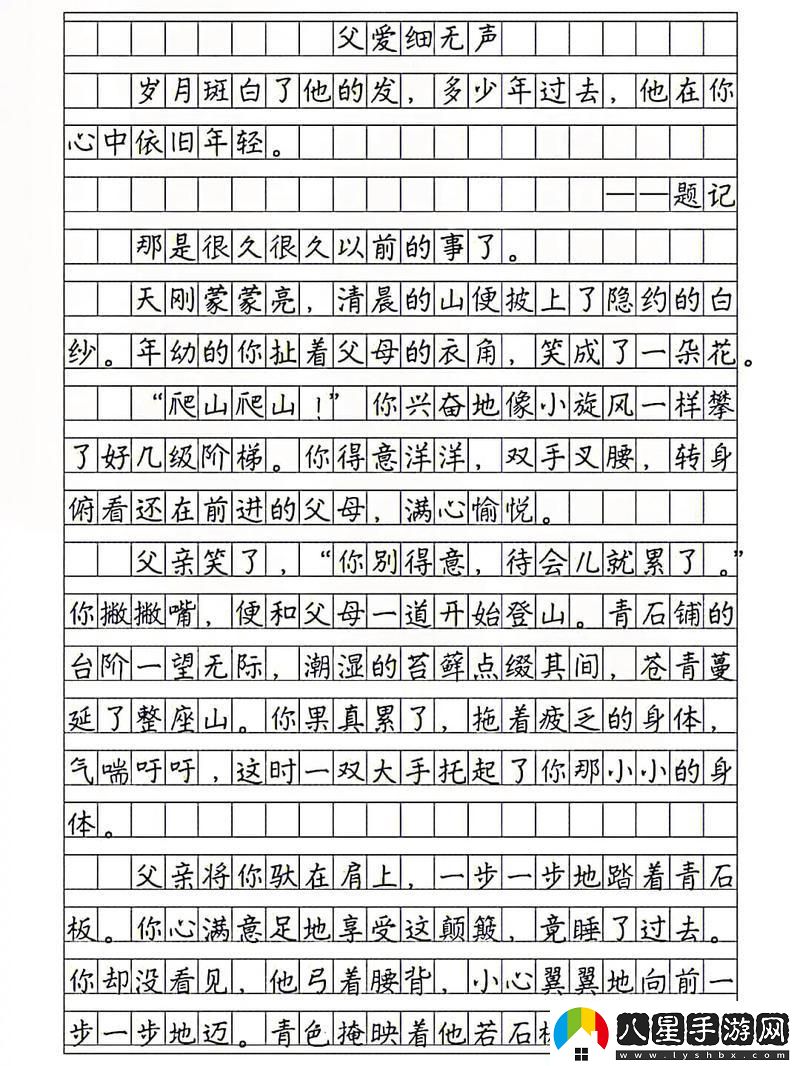 父爱细无声
岁月斑白了他的发，多少年过去，他在你
心中依旧年轻。
——题记
那是很久很久以前的事了。
天刚蒙蒙亮，清晨的山便披上了隐约的白
纱。年幼的你扯着父母的衣角，笑成了一朵花。
“爬山爬山！”你兴奋地像小旋风一样攀
了好几级阶梯。你得意洋洋，双手叉腰，转身
俯看还在前进的父母，满心愉悦。
父亲笑了，“你别得意，待会儿就累了。”
你撇撇嘴，便和父母一道开始登山。青石铺的
台阶一望无际，潮湿的苔藓点缀其间，苍青蔓
延了整座山。你果真累了，拖着疲乏的身体，
气喘吁吁，这时一双大手托起了你那小小的身
体。
父亲将你驮在肩上，一步一步地踏着青石
板。你心满意足地享受这颠簸，竟睡了过去。
你却没看见，他弓着腰背，小心翼翼地向前一
步一步地迈。青色掩映着他若石
八星手游网
www.lyshbx.com